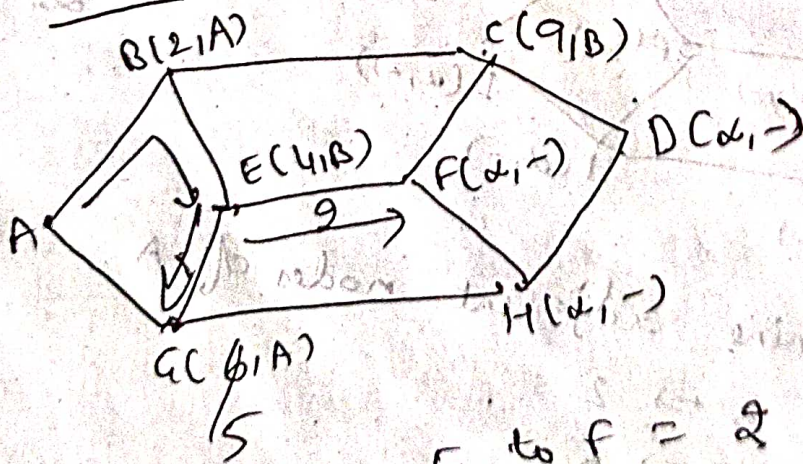 B(2,A)
C(9,B)
D(∞,-)
E(4,B)
F(∞,-)
A
2
H(∞,-)
G(6,A)
5
to f = 2